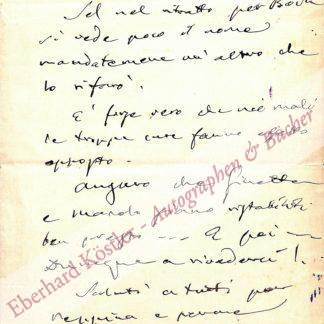 Sel nel ritratto per Bovi
si vede poco il nome
mandatemene un altro che
lo rifarò.
È forse vero che nei mali
le troppe cure fanno effetto
opposto.
auguro che
e marito siano ristabiliti
ben presto --- E poi -
Dunque a rivederci!.
Saluti a tutti per
Peppina e
Eberhard Köstler - Autographen & Bücher